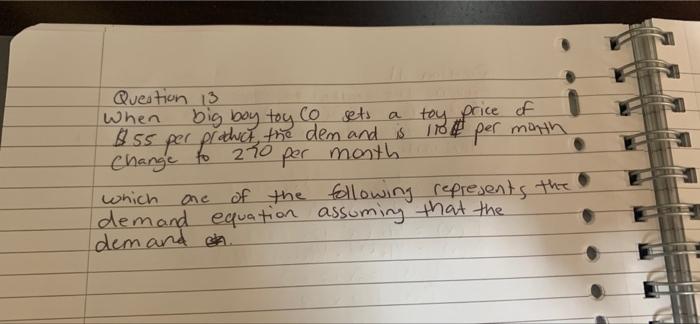 Question 13
When big boy toy CO sets a toy price of
$55 per product, the demand is 110 per month
Change to 270 per month
which one of the following represents the
demand equation assuming that the
demand